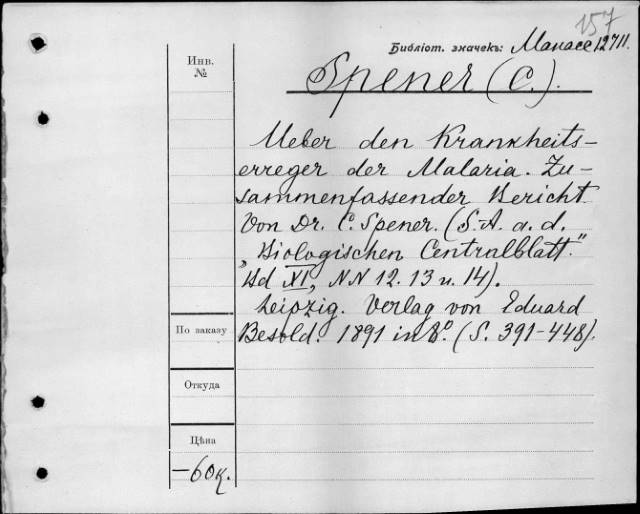 157
Библіот. значекъ: Манасе 12711.
Инв.
№
Spener (C.).
Ueber den Krankheits-
erreger der Malaria. Zu-
sammenfassender Bericht
von Dr. C. Spener. (S.-A. a. d.
„Biologischen Centralblatt."
Bd XI, NN 12. 13 u. 14).
Leipzig. Verlag von Eduard
По заказу
Besold. 1891 in 8º. (S. 391-448).
Откуда
Цѣна
—60к.